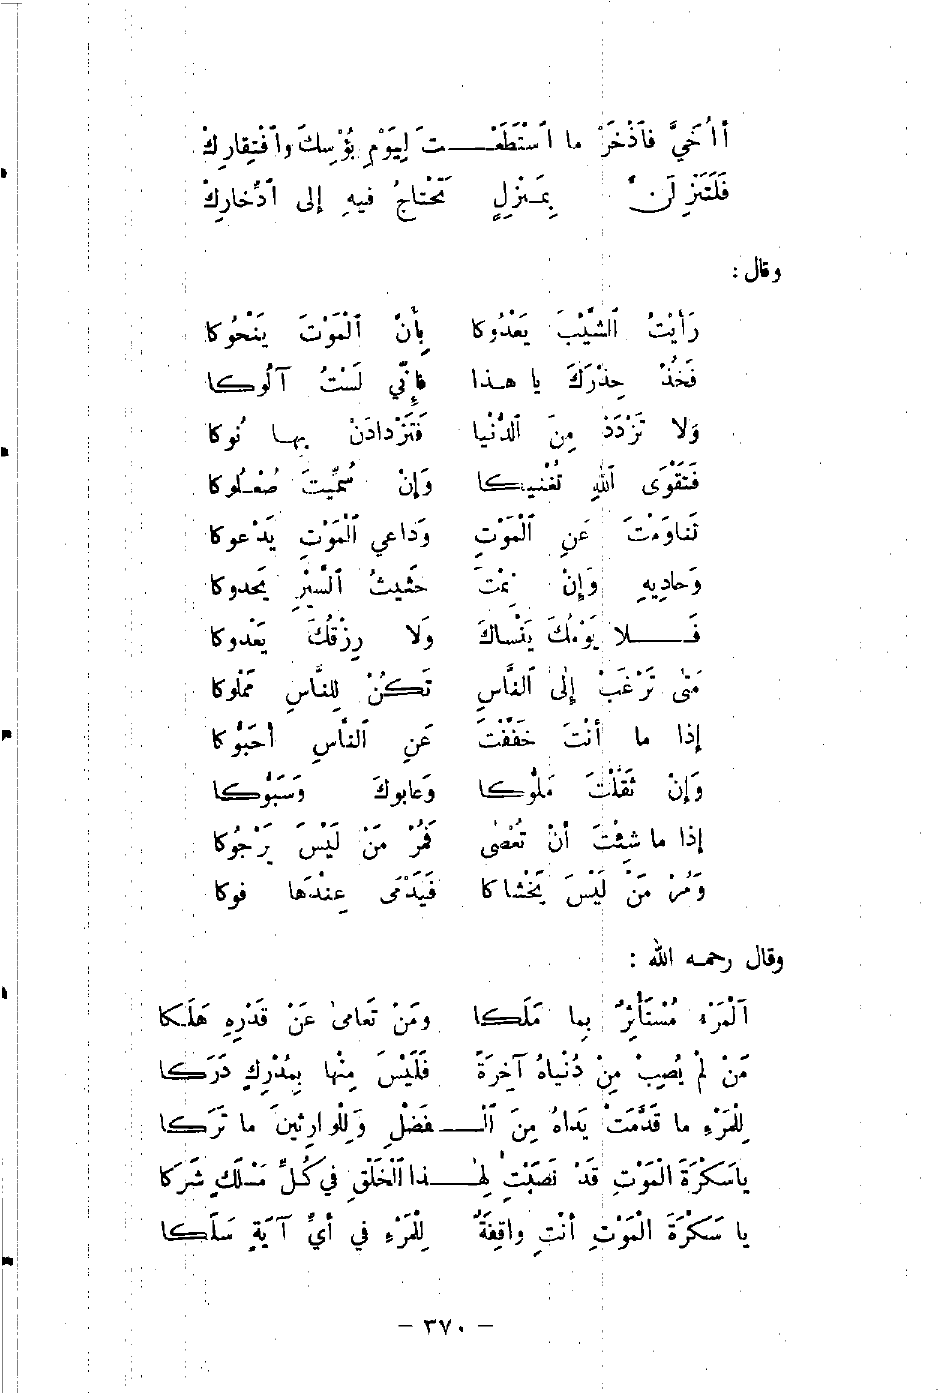 أَأُخَيَّ فَٱذْخَرْ ما ٱسْتَطَعْـــتَ لِيَوْمِ بُؤْسِكَ وٱفْتِقارِكْ
فَلَتَنْزِلَنَّ بِمَنْزِلٍ تَحْتاجُ فيهِ إلى ٱدِّخارِكْ
وقال :
رَأيْتُ ٱلشَّيْبَ يَعْدُوكا بِأنَّ ٱلْمَوْتَ يَنْحُوكا
فَخُذْ حِذْرَكَ يا هذا فإنّي لَسْتُ آلُوكا
وَلا تَزْدَدْ مِنَ ٱلدُّنْيا فَتَزْدادَنْ بها نُوكا
فَتَقْوَى ٱللهِ تُغْنيكا وَإنْ سُمِّيتَ صُعْلُوكا
تَناوَمْتَ عَنِ ٱلْمَوْتِ وَداعي ٱلْمَوْتِ يَدْعوكا
وَحادِيهِ وَإنْ نِمْتَ حَثيثُ ٱلسَّيْرِ يَحدوكا
فَـــلا يَوْمُكَ يَنْساكَ وَلا رِزْقُكَ يَعْدوكا
مَتى تَرْغَبْ إلى ٱلنَّاسِ تَكُنْ لِلنَّاسِ مَمْلوكا
إذا ما أنْتَ خَفَّفْتَ عَنِ ٱلنَّاسِ أحَبُّوكا
وَإنْ ثَقَّلْتَ مَلُّوكا وَعابوكَ وَسَبُّوكا
إذا ما شِئْتَ أنْ تُعْصَى فَمُرْ مَنْ لَيْسَ يَرْجُوكا
وَمُرْ مَنْ لَيْسَ يَخْشاكا فَيَدْمَى عِنْدَها فوكا
وقال رحمه الله :
اَلْمَرْءُ مُسْتَأْثِرٌ بِما مَلَكا ومَنْ تَعامىٰ عَنْ قَدْرِهِ هَلَكا
مَنْ لَمْ يُصِبْ مِنْ دُنْياهُ آخِرَةً فَلَيْسَ مِنْها بِمُدْرِكٍ دَرَكا
لِلمَرْءِ ما قَدَّمَتْ يَداهُ مِنَ ٱلْـــفَضْلِ وَلِلْوارِثينَ ما تَرَكا
يا سَكْرَةَ الْمَوْتِ قَدْ نَصَبْتِ لِهٰـــذا ٱلْخَلْقِ في كُلِّ مَسْلَكٍ شَرَكا
يا سَكْرَةَ الْمَوْتِ أنْتِ واقِفَةٌ لِلمَرْءِ في أيِّ آيَةٍ سَلَكا
– ٣٧٠ –